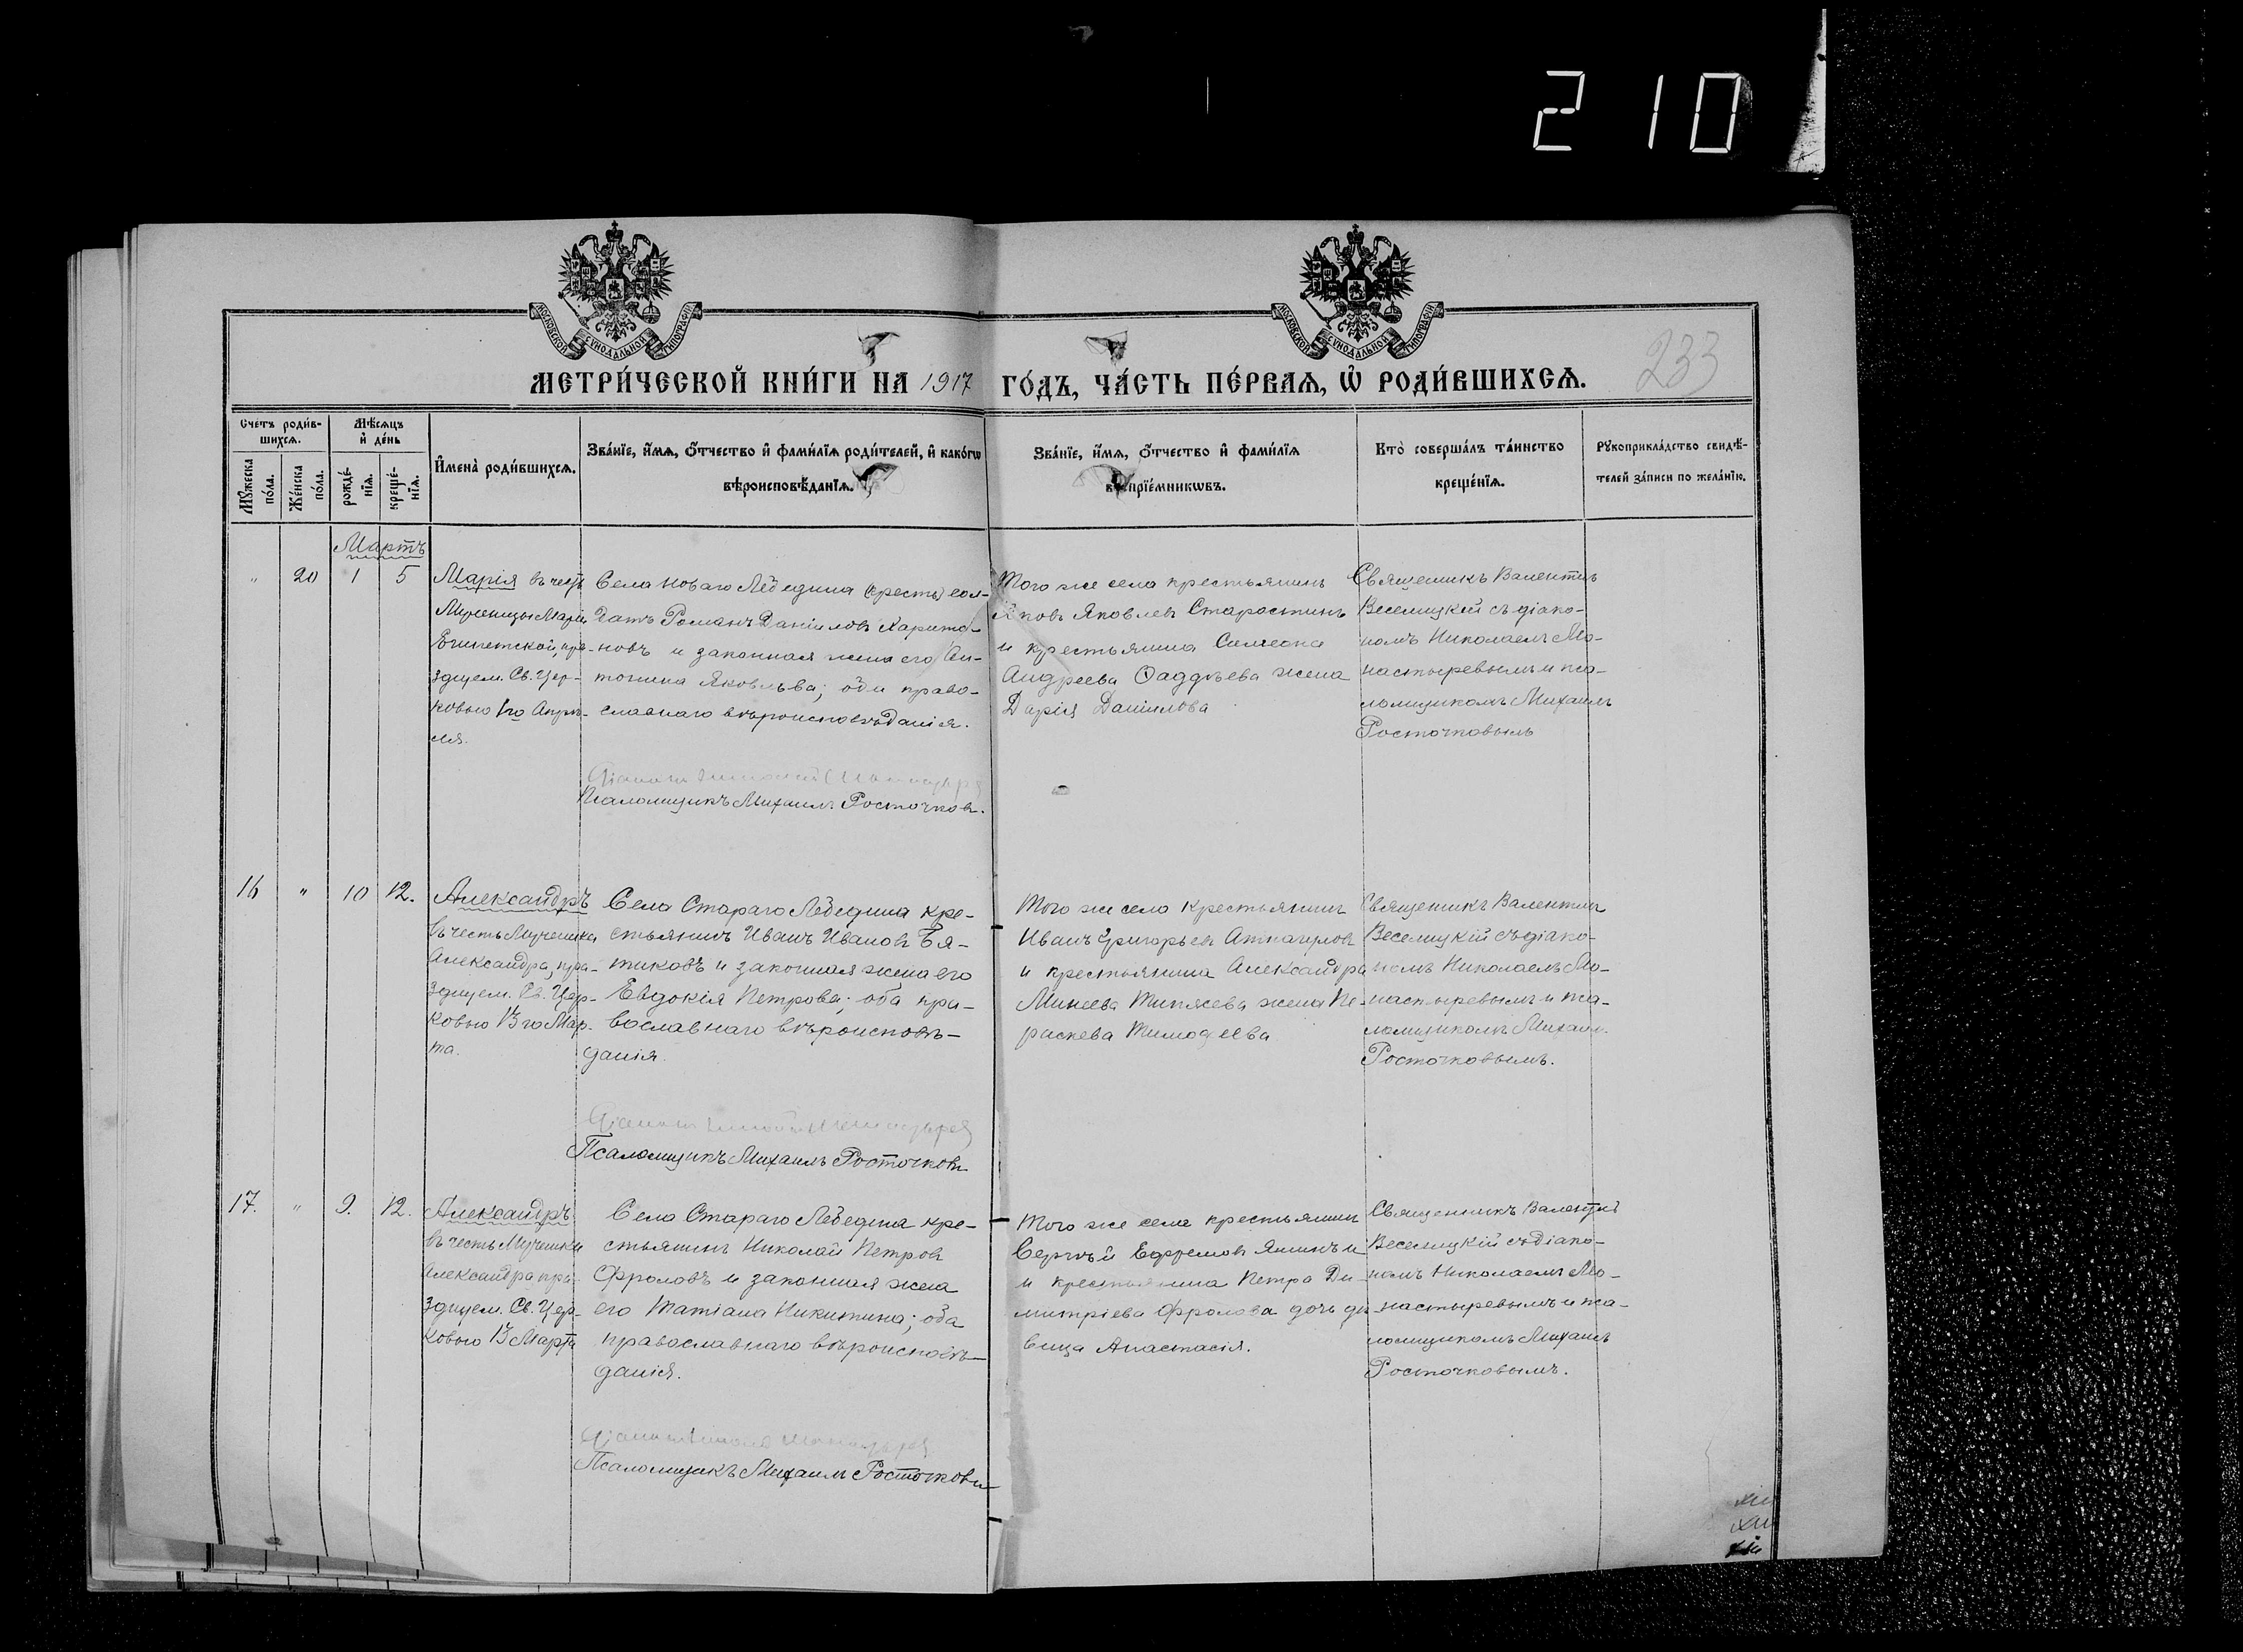 210
МОСКОВСКОЙ СѴНОДАЛЬНОЙ ТИПОГРАФІИ
МОСКОВСКОЙ СѴНОДАЛЬНОЙ ТИПОГРАФІИ
233
МЕТРИ́ЧЕСКОЙ КНИ́ГИ НА 1917 ГО́ДЪ, ЧА́СТЬ ПЕ́РВАѦ, Ѡ҆ РОДИ́ВШИХСѦ.
Счетъ роди́в-
шихсѧ.
Мѣ́сѧцъ
и҆ де́нь
Мꙋжеска
по́ла.
Же́нска
по́ла.
рожде́-
нїѧ.
креще́-
нїѧ.
И҆мена̀ роди́вшихсѧ.
Зва́нїе, и҆́мѧ, ѻ҆́тчество и҆ фами́лїѧ роди́телей, и҆ како́гѡ
вѣроисповѣ́данїѧ.
Зва́нїе, и҆́мѧ, ѻ҆́тчество и҆ фами́лїѧ
прїе́мникѡвъ.
Кто̀ соверша́лъ та́инство
креще́нїѧ.
Рꙋкоприкла́дство свидѣ́-
телей за́писи по жела́нїю.
Мартъ
" 20 1 5
Марія въ честь
Мученицы Маріи
Египетской, пра-
здуем. Св. Цер-
ковью 1го Апрѣ-
ля.
Села Новаго Лебедина (крест.) сол-
датъ Романъ Даніиловъ Харито-
новъ и законная жена его Ан-
тонина Яковлева; оба право-
славнаго вѣроисповѣданія.
Псаломщикъ Михаилъ Росточковъ.
Того же села крестьянинъ
Яковъ Яковлевъ Старостинъ
и крестьянина Симеона
Андреева Фаддѣева жена
Дарія Даніилова
Священникъ Валентинъ
Веселицкій съ діако-
номъ Николаемъ Мо-
настыревымъ и пса-
ломщикомъ Михаилъ
Росточковымъ
16 " 10 12.
Александръ
въ честь Мученика
Александра, пра-
здуем. Св. Цер-
ковью 13го Мар-
та.
Села Стараго Лебедина кре-
стьянинъ Иванъ Ивановъ Бя-
тиковъ и законная жена его
Евдокія Петрова; оба пра-
вославнаго вѣроисповѣ-
данія.
Псаломщикъ Михаилъ Росточковъ
Того же села крестьянинъ
Иванъ Григорьевъ
и крестьянина Александра
Минеева жена Па-
раскева Тимофеева
Священникъ Валентинъ
Веселицкій съ діако-
номъ Николаемъ Мо-
настыревымъ и пса-
ломщикомъ Михаил.
Росточковымъ.
17. " 9. 12.
Александръ
въ честь Мученика
Александра пра-
здуем. Св. Цер-
ковью 13 Марта
Села Стараго Лебедина кре-
стьянинъ Николай Петровъ
Фроловъ и законная жена
его Татіана Никитина; оба
православнаго вѣроисповѣ-
данія.
Псаломщикъ Михаилъ Росточковъ
Того же села крестьянинъ
Сергѣй Ефремовъ Яшинъ и
и крестьянина Петра Ди-
митріева Фролова дочь дѣ-
вица Анастасія.
Священникъ Валентинъ
Веселицкій съ діако-
номъ Николаемъ Мо-
настыревымъ и пса-
ломщикомъ Михаилъ
Росточковымъ.